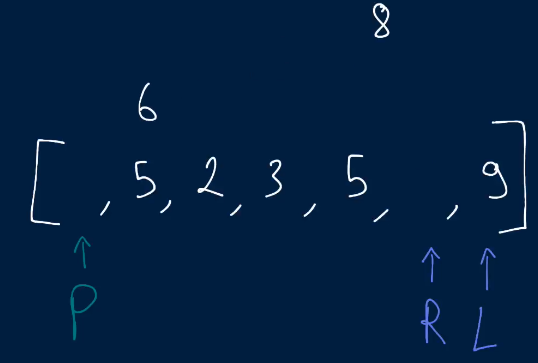 8
6
[ , 5, 2, 3, 5, , 9]
P R L